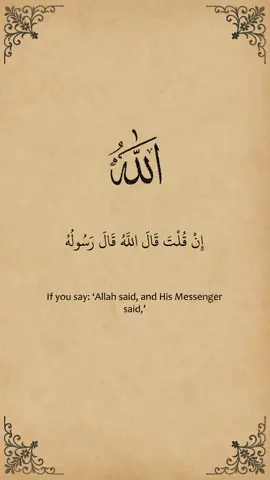 الله
إِنْ قُلْتَ قَالَ اللَّهُ قَالَ رَسُولُهُ
If you say: ‘Allah said, and His Messenger
said,’